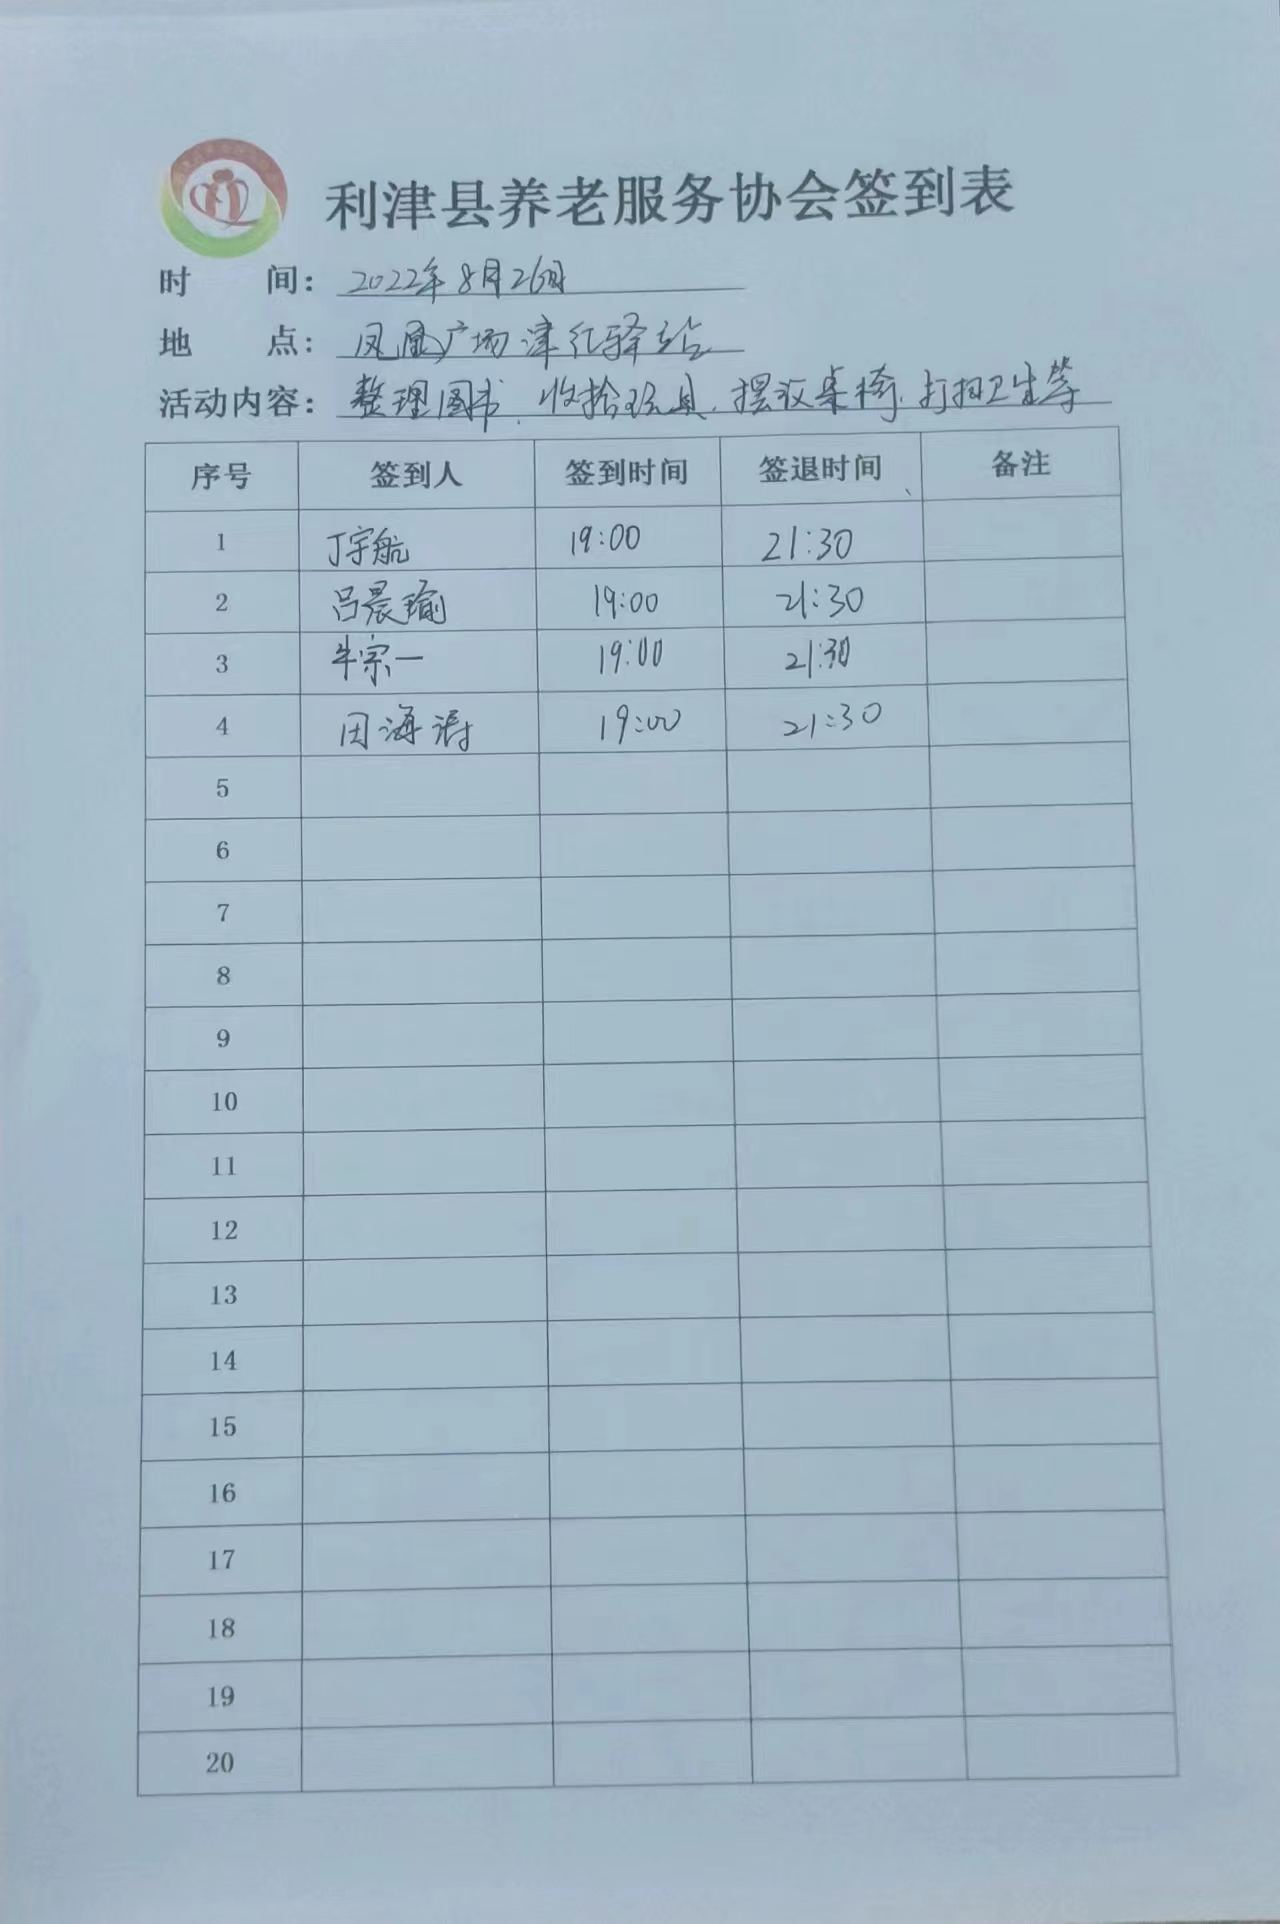 利津县养老服务协会签到表
时 间： 2022年8月26日
地 点： 凤凰广场津红驿站
活动内容： 整理图书、收拾玩具、摆放桌椅、打扫卫生等
序号 签到人 签到时间 签退时间 备注
1 丁宇航 19:00 21:30
2 吕晨瑜 19:00 21:30
3 牛宗一 19:00 21:30
4 海涛 19:00 21:30
5
6
7
8
9
10
11
12
13
14
15
16
17
18
19
20